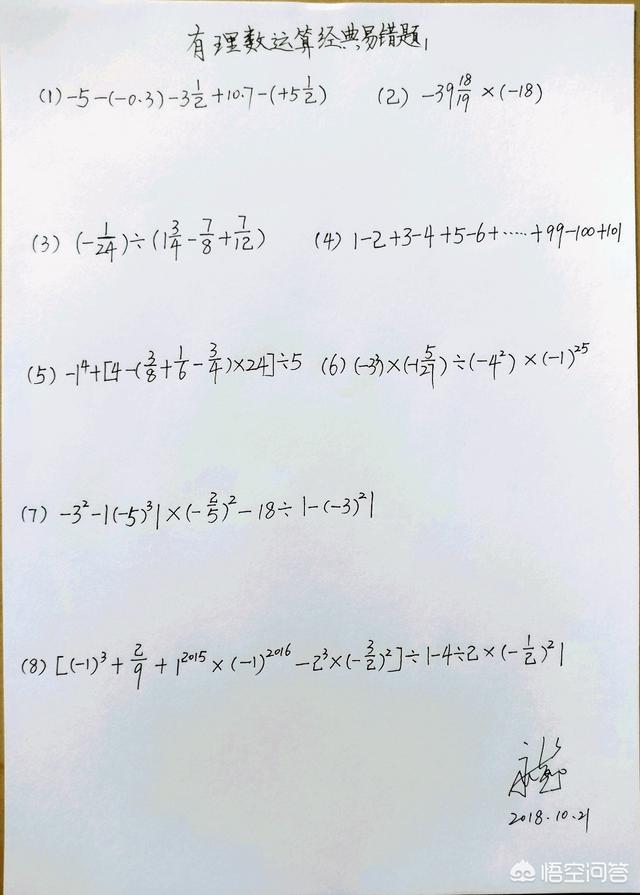 有理数运算经典易错题
(1) -5-(-0.3)-3½+10.7-(+5½) (2) -39 18/19 ×(-18)
(3) (-1/24)÷(1¾-7/8+7/12) (4) 1-2+3-4+5-6+……+99-100+101
(5) -1⁴+[4-(3/8+1/6-3/4)×24]÷5 (6) (-3³)×(-1 5/27)÷(-4²)×(-1)²⁵
(7) -3²-|(-5)³|×(-2/5)²-18÷|-(-3)²|
(8) [(-1)³+2/9+1²⁰¹⁵×(-1)²⁰¹⁶-2³×(-3/2)²]÷|-4÷2×(-1/2)²|
2018.10.21
悟空问答